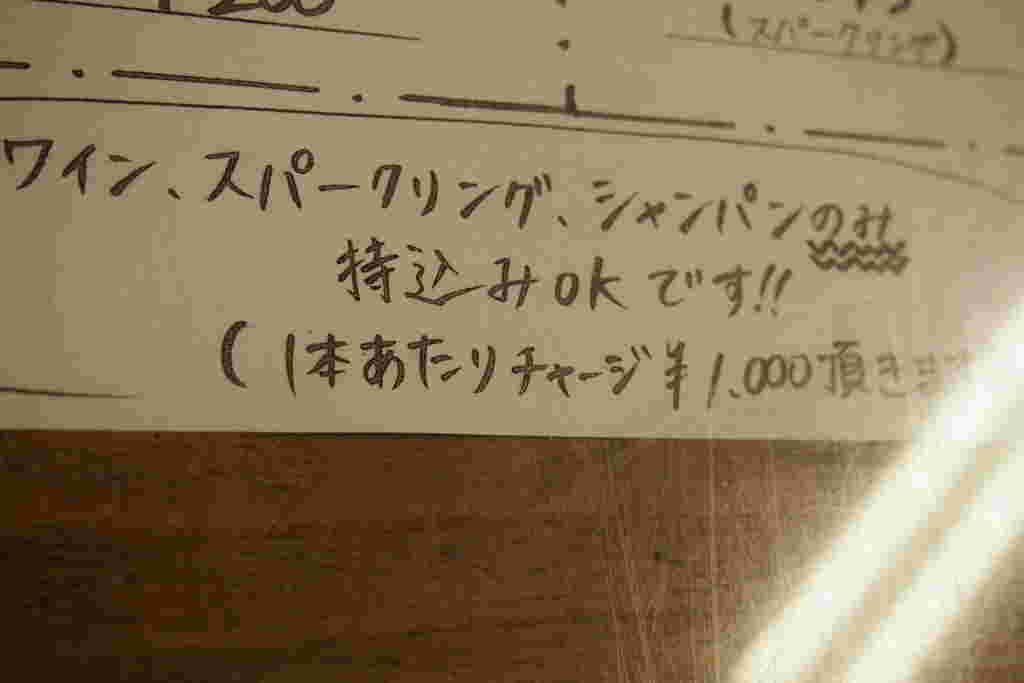 (スパークリング)
ワイン、スパークリング、シャンパンのみ
持込みOKです!!
(1本あたりチャージ¥1.000頂きます